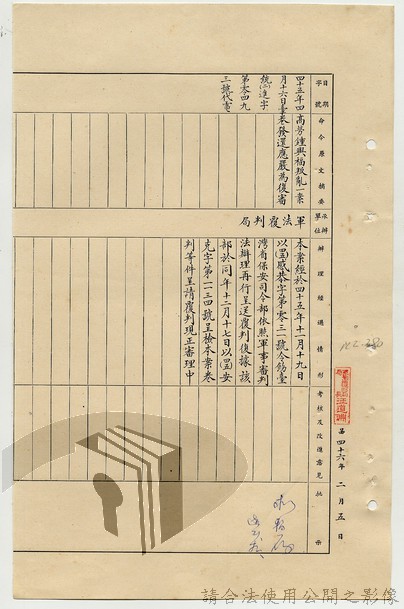 日期
字號
命令原文摘要
承辦單位
辦理經過情形
考核及改進意見
批示
四十五年四
月十六日臺
統㈡達字
第零四九
三號代電
高芳鍾興福叛亂一案
卷發還應嚴為復審
軍法覆判局
本案經於四十五年十一月十九日
以
感恭字第零三一號令飭臺
灣省保安司令部依照軍事審判
法辦理再行呈送覆判後據該
部於同年十二月十七日以
安
克字第一一三四號呈檢本案卷
判等件呈請覆判現正審理中
四十六年二月五日
請合法使用公開之影像